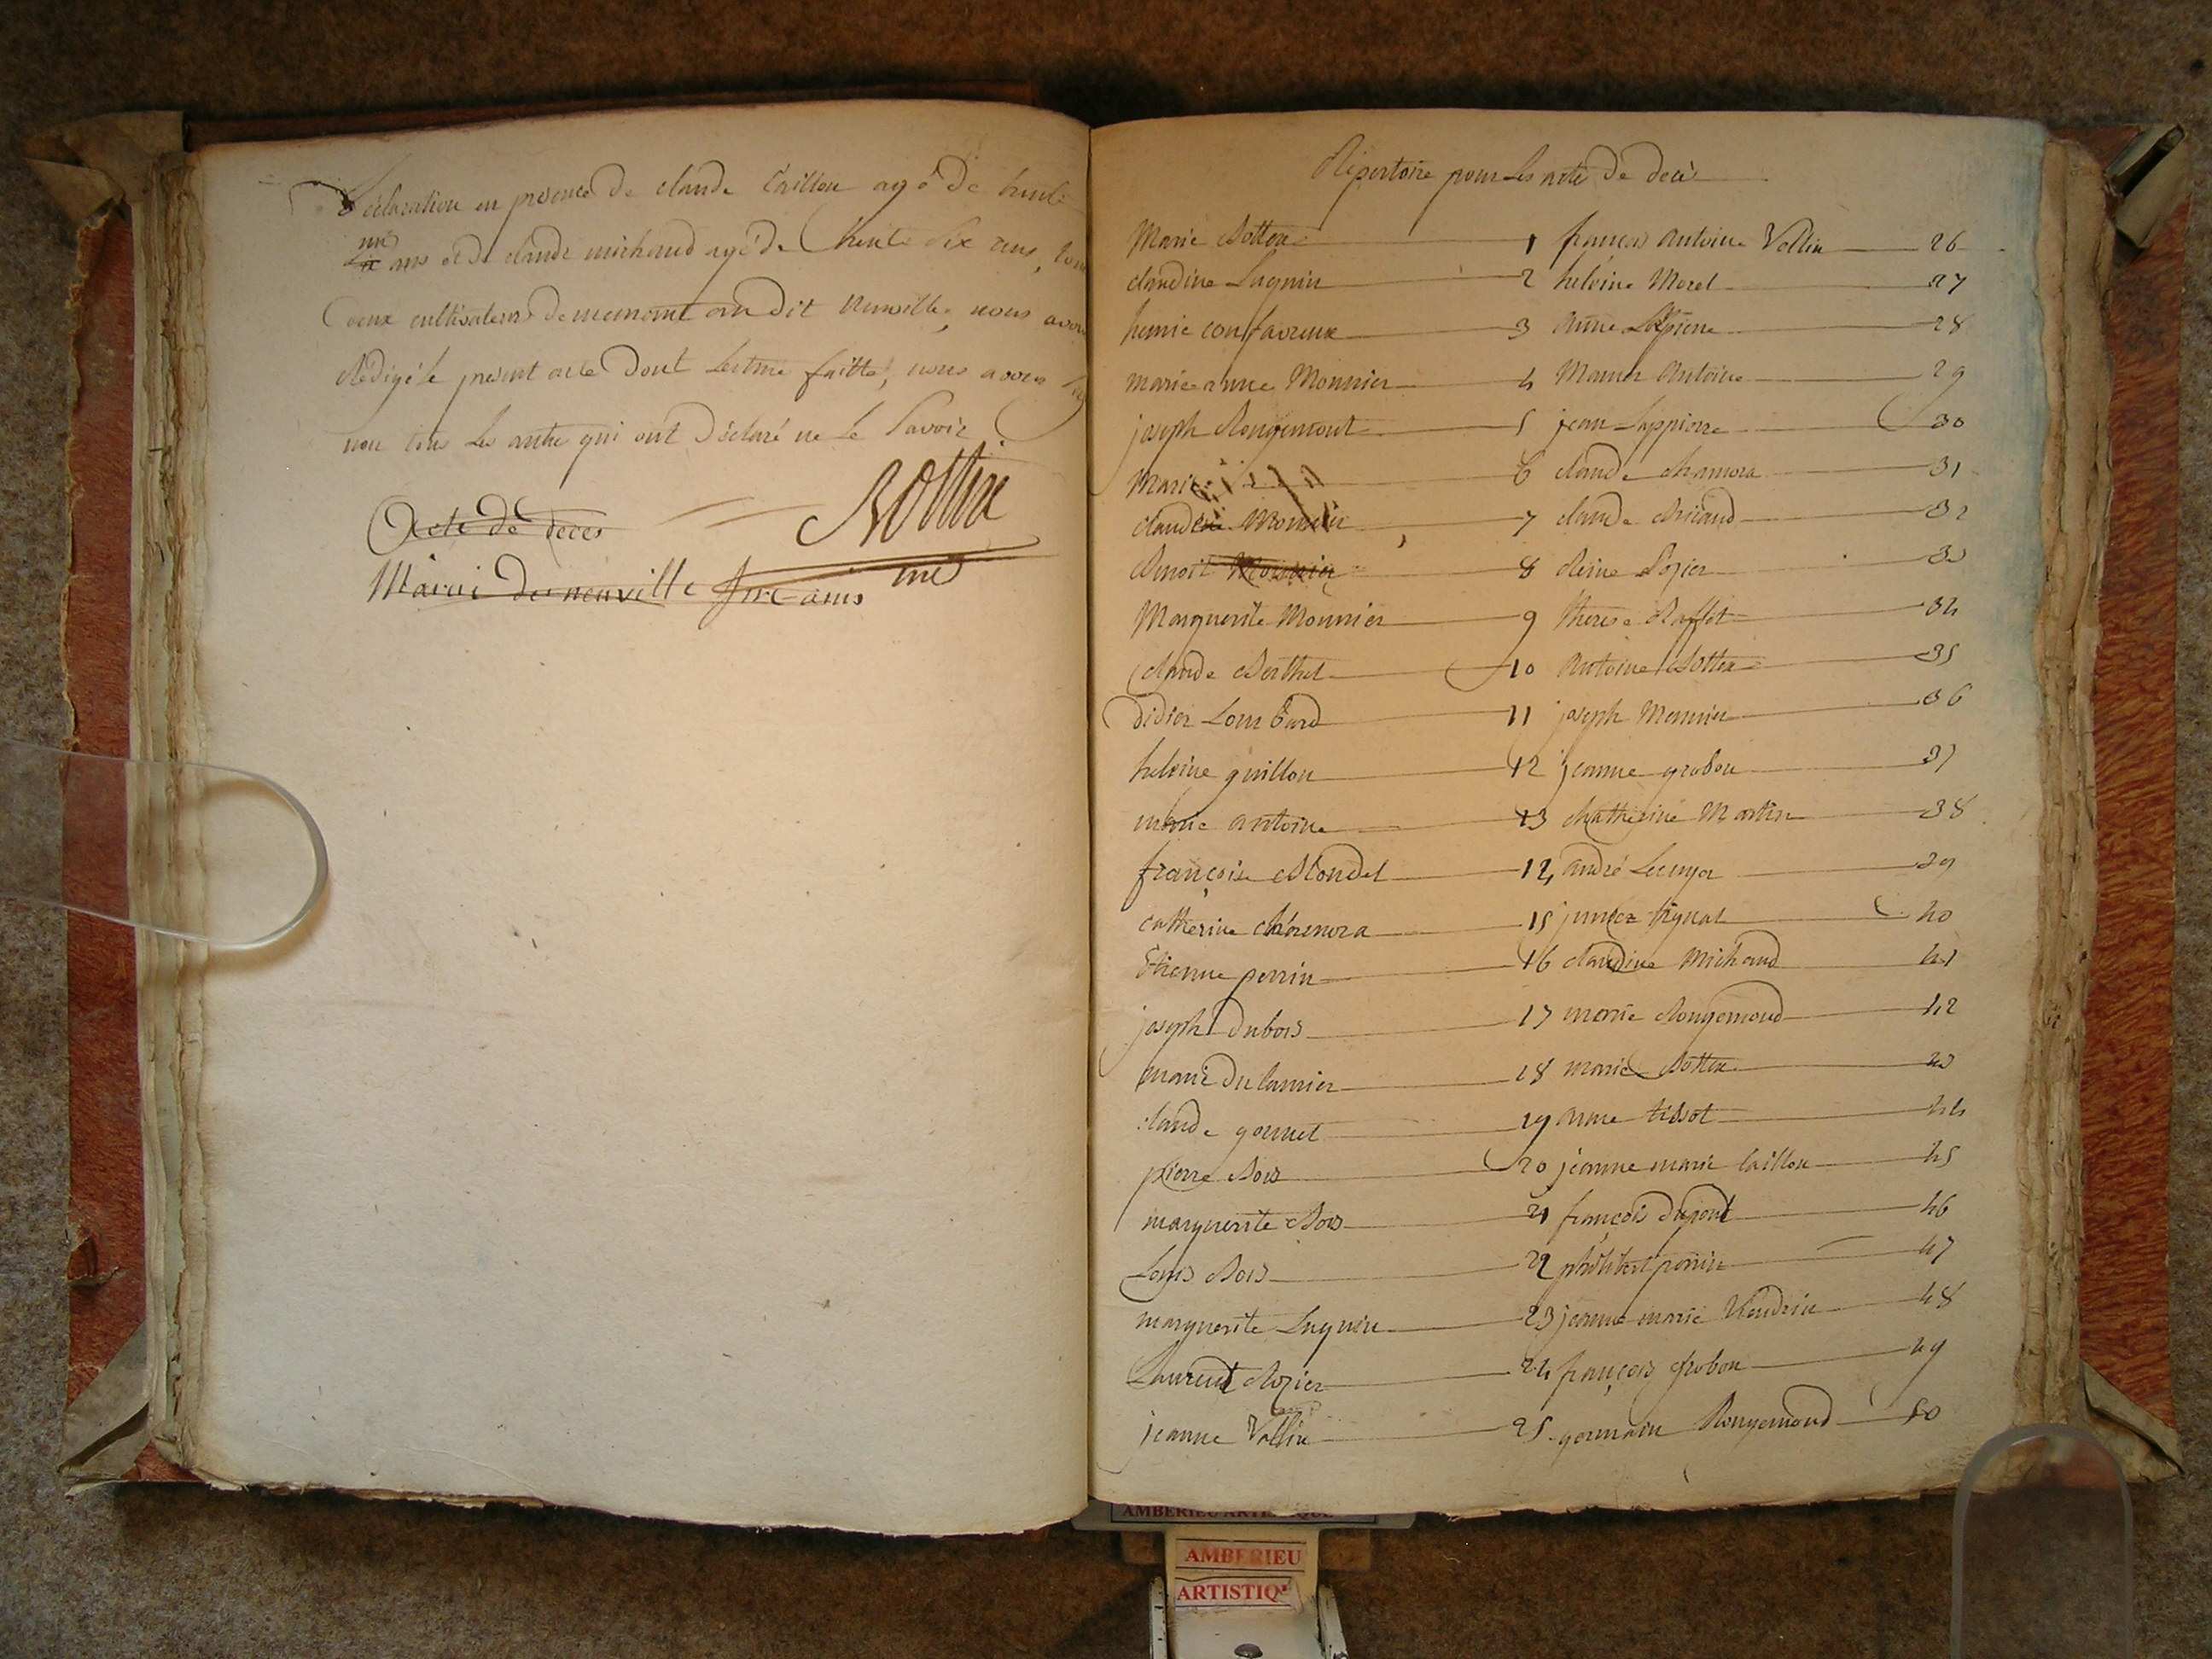 déclaration en présence de claude Caillou agé de trente
une
six ans et de claude michaud agé de trente six ans, tous
deux cultivateurs demeurant au dit neuville, nous avons
Rédigé le present acte dont lecture faitte, nous avons
non tous les autre qui ont déclaré ne le Savoir
Bottex
Acte de deces
Mairie de neuville sur ains
Répertoire pour les acte de decès
Marie Bottex 1 françois Antoine Vollin 26
claudine Luquin 2 heleine Morel 27
3 anne Lapierre 28
marie anne Monnier 4 Antoine 29
joseph Rougemont 5 jean Lappierre 30
Marie 6 claude chamora 31
claudine Monnier 7 claude 32
Benoit Monnier 8 Reine Rozier 33
Marguerite Monnier 9 therese 34
claude Berthet 10 Antoine Bottex 35
didier Lombard 11 joseph Monnier 36
heleine guillon 12 jeanne grobon 37
marie antoine 13 Chatherine Martin 38
françoise Blondel 14 andré 39
catherine 15 40
Etienne perrin 16 claudine Michaud 41
joseph Dubois 17 marie Rougemond 42
marie 18 marie Bottex 43
claude gonnet 19 anne tissot 44
pierre Bois 20 jeanne marie Caillou 45
marguerite Bois 21 françois dupont 46
Louis Bois 22 philibert perrin 47
marguerite Luquin 23 jeanne marie Vendrin 48
Laurent Rozier 24 françois Grobon 49
jeanne Vollin 25 germain Rougemond 50
AMBERIEU ARTISTIQUE
AMBERIEU
ARTISTIQ